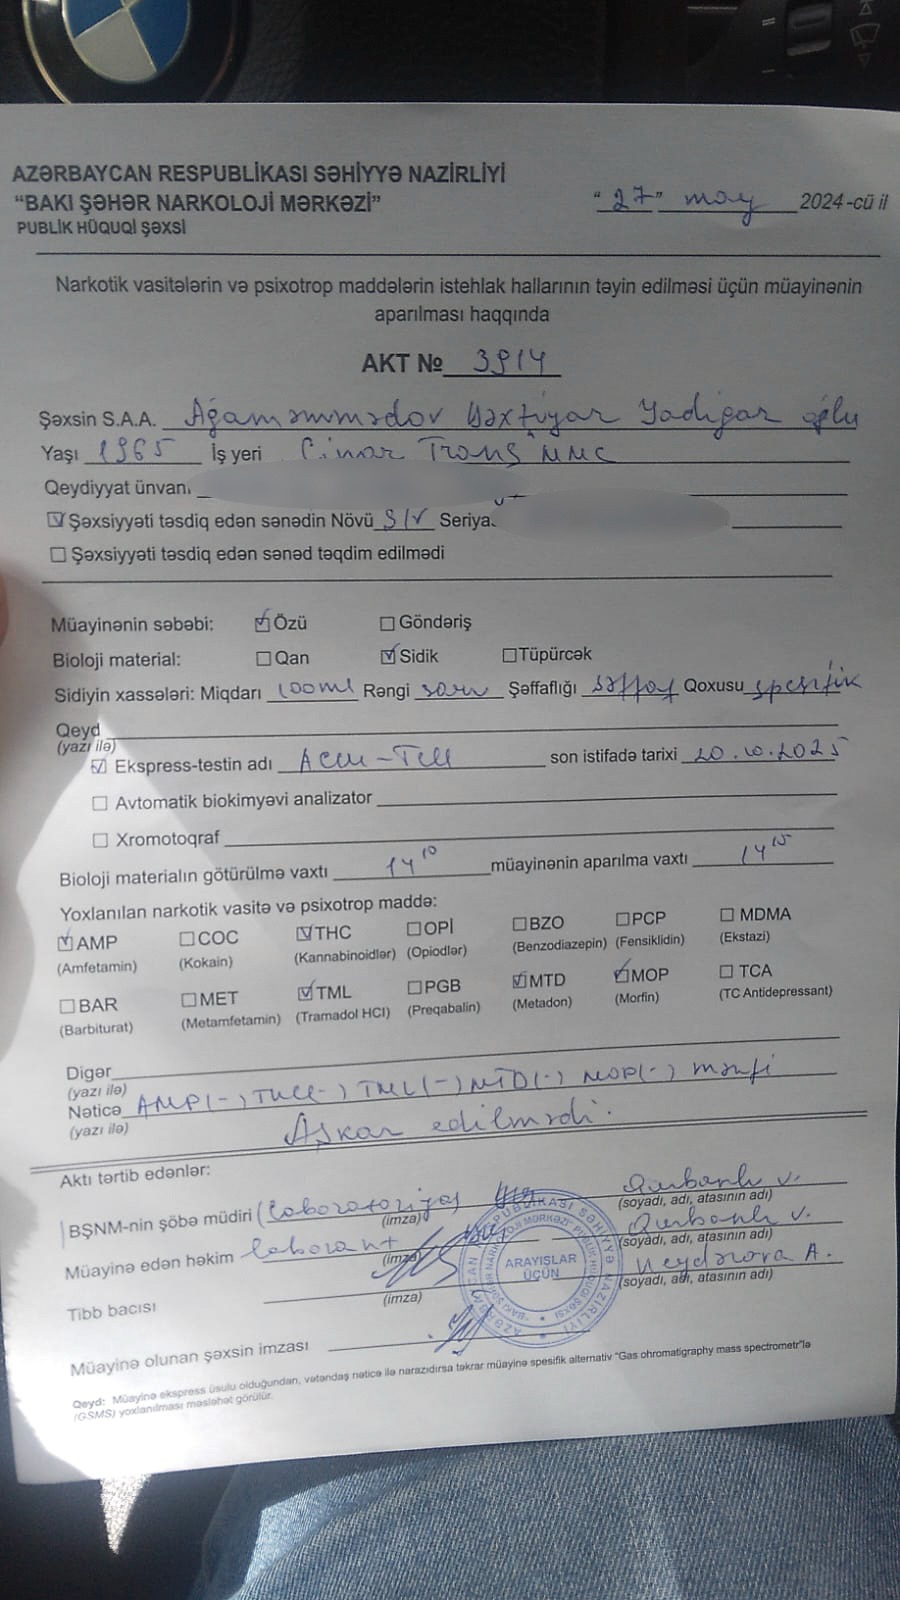 AZƏRBAYCAN RESPUBLİKASI SƏHİYYƏ NAZİRLİYİ
"BAKI ŞƏHƏR NARKOLOJİ MƏRKƏZİ"
PUBLİK HÜQUQİ ŞƏXSİ
"27" may 2024-cü il
Narkotik vasitələrin və psixotrop maddələrin istehlak hallarının təyin edilməsi üçün müayinənin
aparılması haqqında
AKT № 3914
Şəxsin S.A.A. Ağaməmmədov Bəxtiyar Yadigar oğlu
Yaşı 1965 İş yeri Cinar Trans MMC
Qeydiyyat ünvanı
Şəxsiyyəti təsdiq edən sənədin Növü Ş/V Seriya
Şəxsiyyəti təsdiq edən sənəd təqdim edilmədi
Müayinənin səbəbi: Özü Göndəriş
Bioloji material: Qan Sidik Tüpürcək
Sidiyin xassələri: Miqdarı 100ml Rəngi sarı Şəffaflığı şəffaf Qoxusu spesifik
Qeyd
(yazı ilə)
Ekspress-testin adı Accu-Tell son istifadə tarixi 20.10.2025
Avtomatik biokimyəvi analizator
Xromotoqraf
Bioloji materialın götürülmə vaxtı 14 10 müayinənin aparılma vaxtı 14 15
Yoxlanılan narkotik vasitə və psixotrop maddə:
AMP COC THC OPİ BZO PCP MDMA
(Amfetamin) (Kokain) (Kannabinoidlər) (Opiodlər) (Benzodiazepin) (Fensiklidin) (Ekstazi)
BAR MET TML PGB MTD MOP TCA
(Barbiturat) (Metamfetamin) (Tramadol HCl) (Preqabalin) (Metadon) (Morfin) (TC Antidepressant)
Digər
(yazı ilə)
Nəticə AMP(-) THC(-) TML(-) MTD(-) MOP(-) mənfi
(yazı ilə)
Aşkar edilmədi.
Aktı tərtib edənlər:
BŞNM-nin şöbə müdiri Qurbanlı V.
(imza) (soyadı, adı, atasının adı)
Müayinə edən həkim laborant Qurbanlı V.
(imza) (soyadı, adı, atasının adı)
Tibb bacısı A.
(imza) (soyadı, adı, atasının adı)
ARAYIŞLAR
ÜÇÜN
Müayinə olunan şəxsin imzası
Qeyd: Müayinə ekspress üsulu olduğundan, vətəndaş nəticə ilə narazıdırsa təkrar müayinə spesifik alternativ "Gas ohromatigraphy mass spectrometr"lə
(GSMS) yoxlanılması məsləhət görülür.